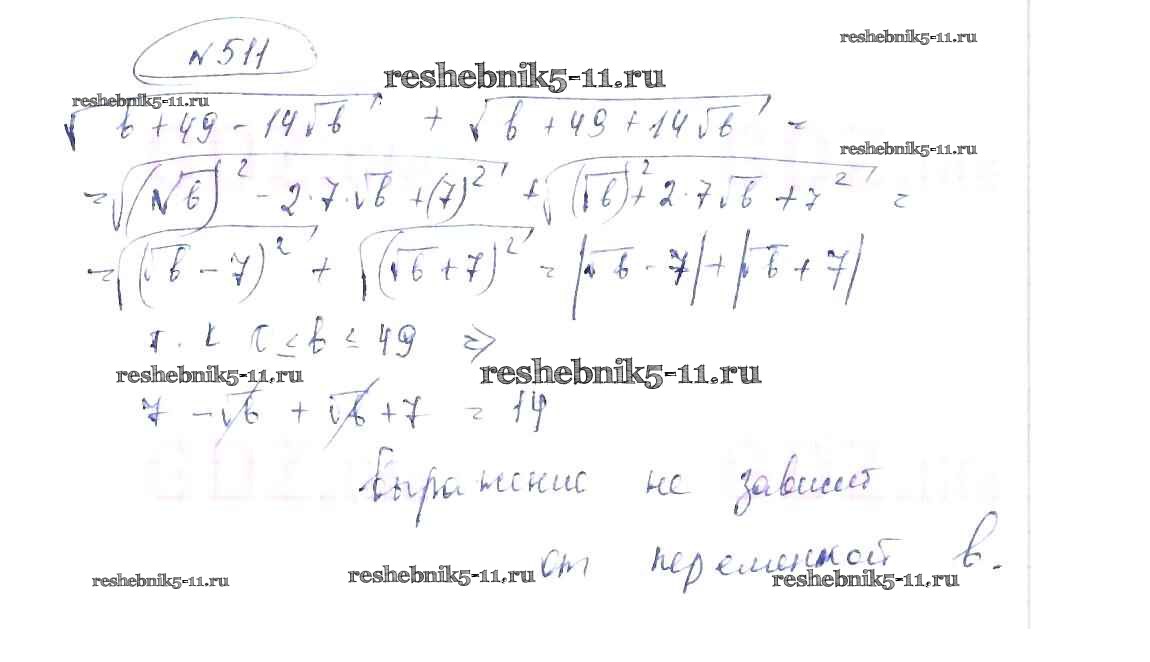 №511
reshebnik5-11.ru
reshebnik5-11.ru
reshebnik5-11.ru
√(b + 49 - 14√b) + √(b + 49 + 14√b) =
reshebnik5-11.ru
= √((√b)² - 2·7·√b + (7)²) + √((√b)² + 2·7√b + 7²) =
= √((√b - 7)²) + √((√b + 7)²) = |√b - 7| + |√b + 7|
т. к ≤ b ≤ 49 ⇒
reshebnik5-11.ru
reshebnik5-11.ru
7 - √b + √b + 7 = 14
Выражение не зависит
от переменной b.
reshebnik5-11.ru
reshebnik5-11.ru
reshebnik5-11.ru